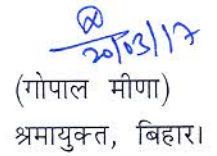 20/03/17
(गोपाल मीणा)
श्रमायुक्त, बिहार।